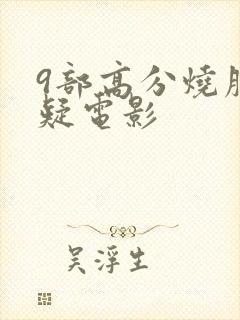 9部高分燒
疑電影
吴浮生